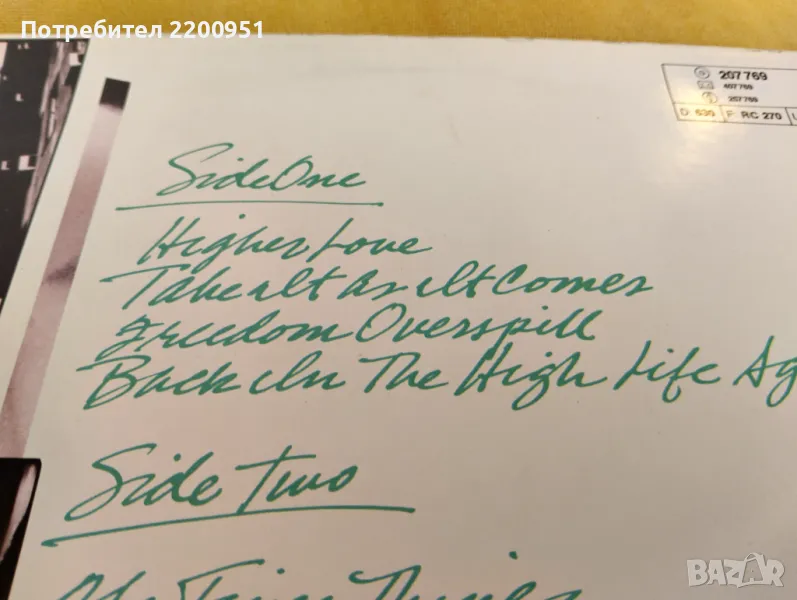 Потребител 2200951
207 769
407 769
257 769
D: 630 F: RC 270
Side One
Higher Love
Take It As It Comes
Freedom Overspill
Back In The High Life Ag
Side Two
BAZAR